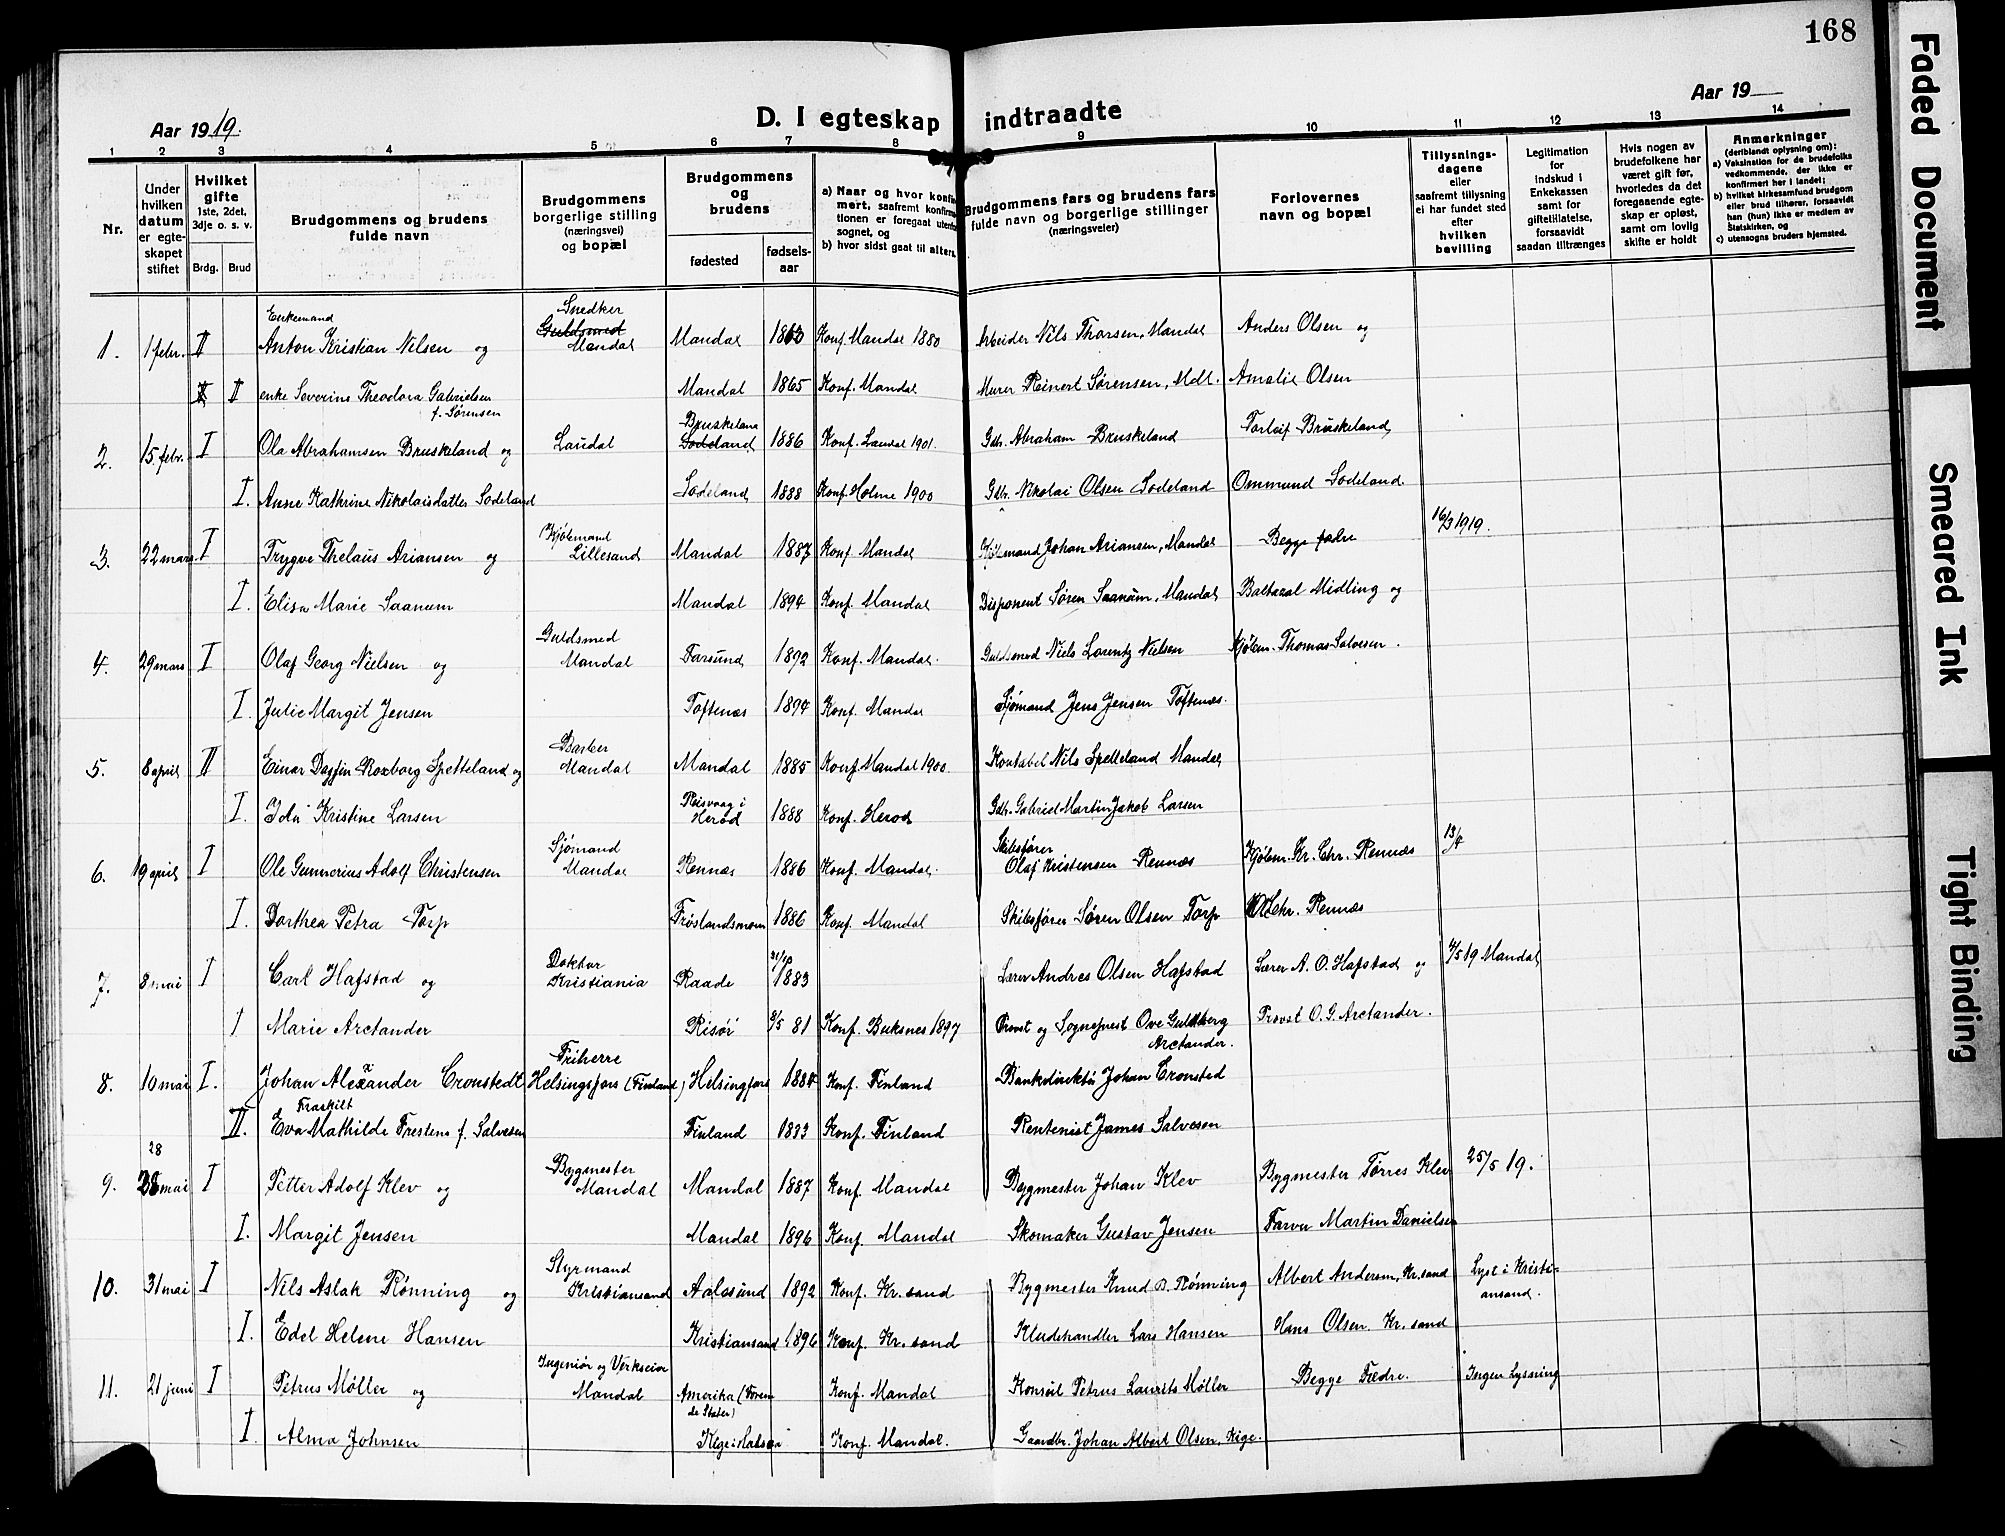 168
Aar 1919.
D. I egteskap indtraadte
Aar 19
1 2 3 4 5 6 7 8 9 10 11 12 13 14
Nr.
Under hvilken datum er egte-skapet stiftet
Hvilket gifte 1ste, 2det, 3dje o. s. v.
Brdg. Brud
Brudgommens og brudens fulde navn
Brudgommens borgerlige stilling (næringsvei) og bopæl
Brudgommens og brudens
fødested
fødsels-aar
a) Naar og hvor konfir-mert, saafremt konfirma-tionen er foregaat utenfor sognet, og
b) hvor sidst gaat til alters.
Brudgommens fars og brudens fars fulde navn og borgerlige stillinger (næringsveier)
Forlovernes navn og bopæl
Tillysnings-dagene eller saafremt tillysning ei har fundet sted efter hvilken bevilling
Legitimation for indskud i Enkekassen samt for giftetilladelse, forsaavidt saadan tiltrænges
Hvis nogen av brudefolkene har været gift før, hvorledes da det foregaaende egte-skap er opløst, samt om lovlig skifte er holdt
Anmerkninger (deriblandt oplysning om):
a) Vaksination for de brudefolks vedkommende, der ikke er konfirmert her i landet;
b) hvilket kirkesamfund brudgom eller brud tilhører, forsaavidt han (hun) ikke er medlem av Statskirken, og
c) utensogns bruders hjemsted.
1. 1 febr. II Enkemand Anton Kristian Nilsen og Snedker Guldsmed Mandal Mandal 1863 Konf. Mandal 1880 Arbeider Nils Thorsen, Mandal Anders Olsen og
II enke Severine Theodora Gabrielsen f. Sørensen Mandal 1865 Konf. Mandal Murer Reinert Sørensen, Mdl. Amalie Olsen
2. 15 febr. I Ola Abrahamsen Bruskeland og Laudal Bruskeland Sodeland 1886 Konf. Laudal 1901. Gbr. Abraham Bruskeland Torleif Bruskeland
I. Anne Kathrine Nikolaisdatter Sodeland Sodeland 1888 Konf. Holme 1900 Gbr. Nikolai Olsen Sodeland Ommund Sodeland.
3. 22 mars I Trygve Thelaus Ariansen og Kjøbmand Lillesand Mandal 1887 Konf. Mandal Kjøbmand Johan Ariansen, Mandal Begge fædre 16/3 1919.
I. Elisa Marie Saanum Mandal 1894 Konf. Mandal Disponent Søren Saanum, Mandal Baltazal Midling og
4. 29 mars I Olaf Georg Nielsen og Guldsmed Mandal Farsund 1892 Konf. Mandal. Guldsmed Niels Lorentz Nielsen Kjøbm. Thomas Salvesen.
I. Julie Margit Jensen Toftenes 1894 Konf. Mandal Sjømand Jens Jensen Toftenes.
5. 8 april II Einar Dagfin Roxborg Spetteland og Barber Mandal Mandal 1885 Konf. Mandal 1900. Nils Spetteland Mandal
I. Ida Kristine Larsen Reisvaag i Herod 1888 Konf. Herod Gbr. Gabriel Martin Jakob Larsen
6. 19 april I Ole Gunnerius Adolf Christensen Sjømand Mandal Rennæs 1886 Konf. Mandal. Skibsfører Olaf Kristensen Rennæs Kjøbm. Kr. Chr. Rennæs 13/4
I. Dorthea Petra Torp Frøslandsmoen 1886 Konf. Mandal Skibsfører Søren Olsen Torp Chr. Rennæs
7. 8 mai I Carl Hafstad og Doktor Kristiania Raade 1883 Lærer Andres Olsen Hafstad Lærer A. O. Hafstad og 4/5 19 Mandal
I Marie Arctander Risør 81 Konf. Buksnes 1897 Provst og Sogneprest Ove Guldberg Arctander. Provst O. G. Arctander.
8. 10 mai I. Johan Alexander Cronstedt Friherre Helsingsfors (Finland) Helsingfors 1884 Konf. Finland Bankdirektør Johan Cronsted
II. Fraskilt Eva Mathilde Frestens f. Salvesen Finland 1833 Konf. Finland Rentenist James Salvesen
9. 28 mai I Petter Adolf Klev og Bygmester Mandal Mandal 1887 Konf. Mandal Bygmester Johan Klev Bygmester Tørres Klev 25/5 19.
I. Margit Jensen Mandal 1896 Konf. Mandal Skomaker Gustav Jensen Farver Martin Danielsen
10. 31 mai I Nils Aslak Rønning og Styrmand Kristiansand Aalesund 1892 Konf. Kr.sand Bygmester Knud B. Rønning Albert Andersen, Kr.sand Lyst i Kristi-ansand.
I. Edel Helene Hansen Kristiansand 1896 Konf. Kr.sand Kludehandler Lars Hansen Hans Olsen Kr.sand
11. 21 juni I Petrus Møller og Ingeniør og Verkseier Mandal Amerika (Foren-de Stater) Konf. Mandal Konsul Petrus Laurits Møller Begge Fædre. Ingen Lysning
I. Alma Johnsen Kige i Halsaa Konf. Mandal. Gaardbr. Johan Albert Olsen, Kige.
Faded Document
Smeared Ink
Tight Binding